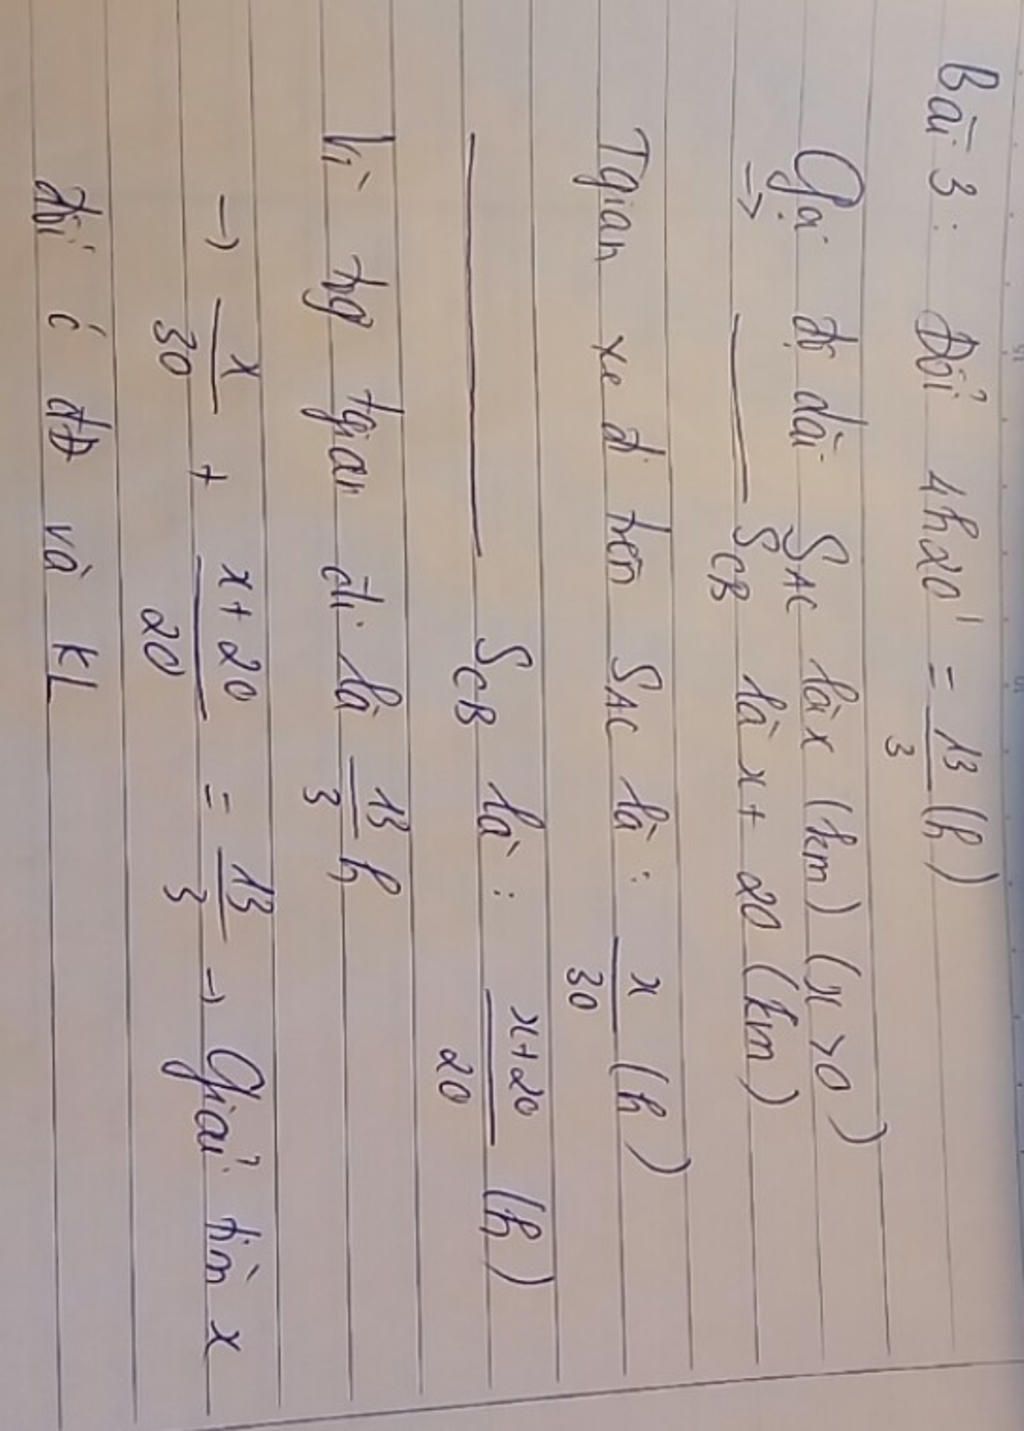 Bài 3: Đổi 4h20' = 13/3 (h)
Gọi độ dài SAC là x (km) (x > 0)
→ ——— SCB là x + 20 (km)
Tgian xe đi trên SAC là: x/30 (h)
——————— SCB là: x+20/20 (h)
Vì tg tgian đi là 13/3 h
→ x/30 + x+20/20 = 13/3 → Giải tìm x
đối c đk và KL